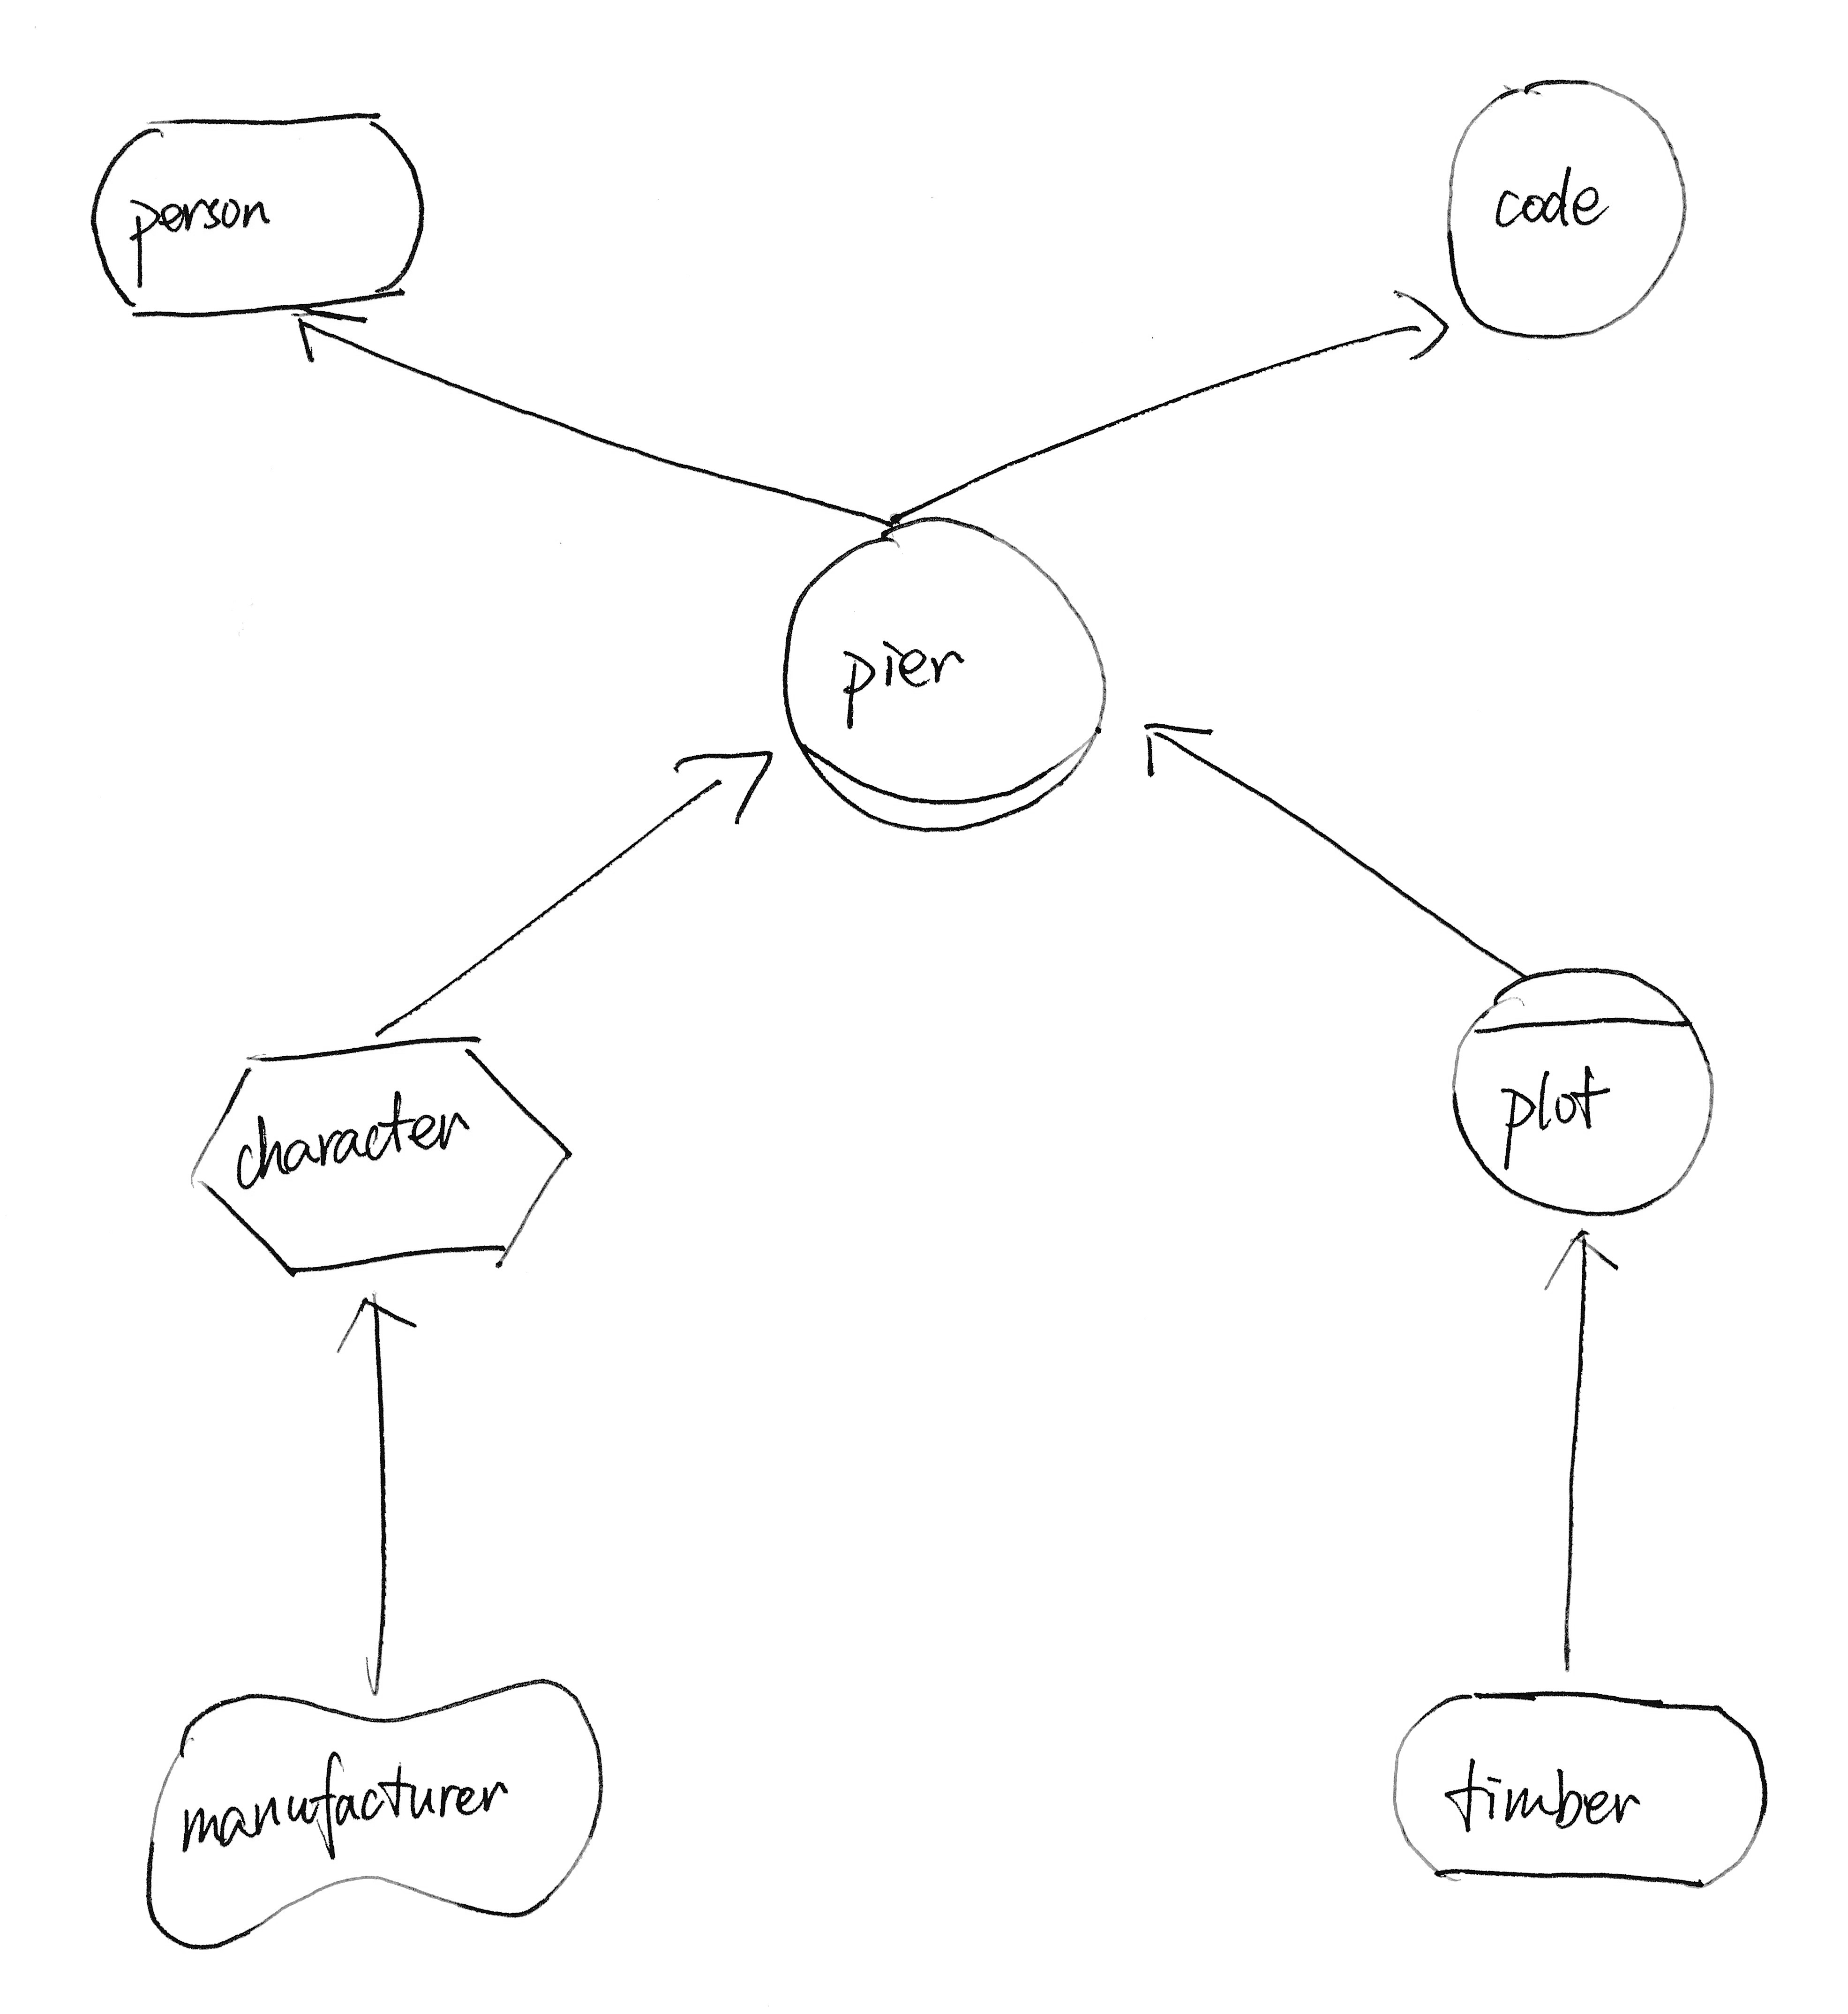 person
code
pier
character
plot
manufacturer
timber